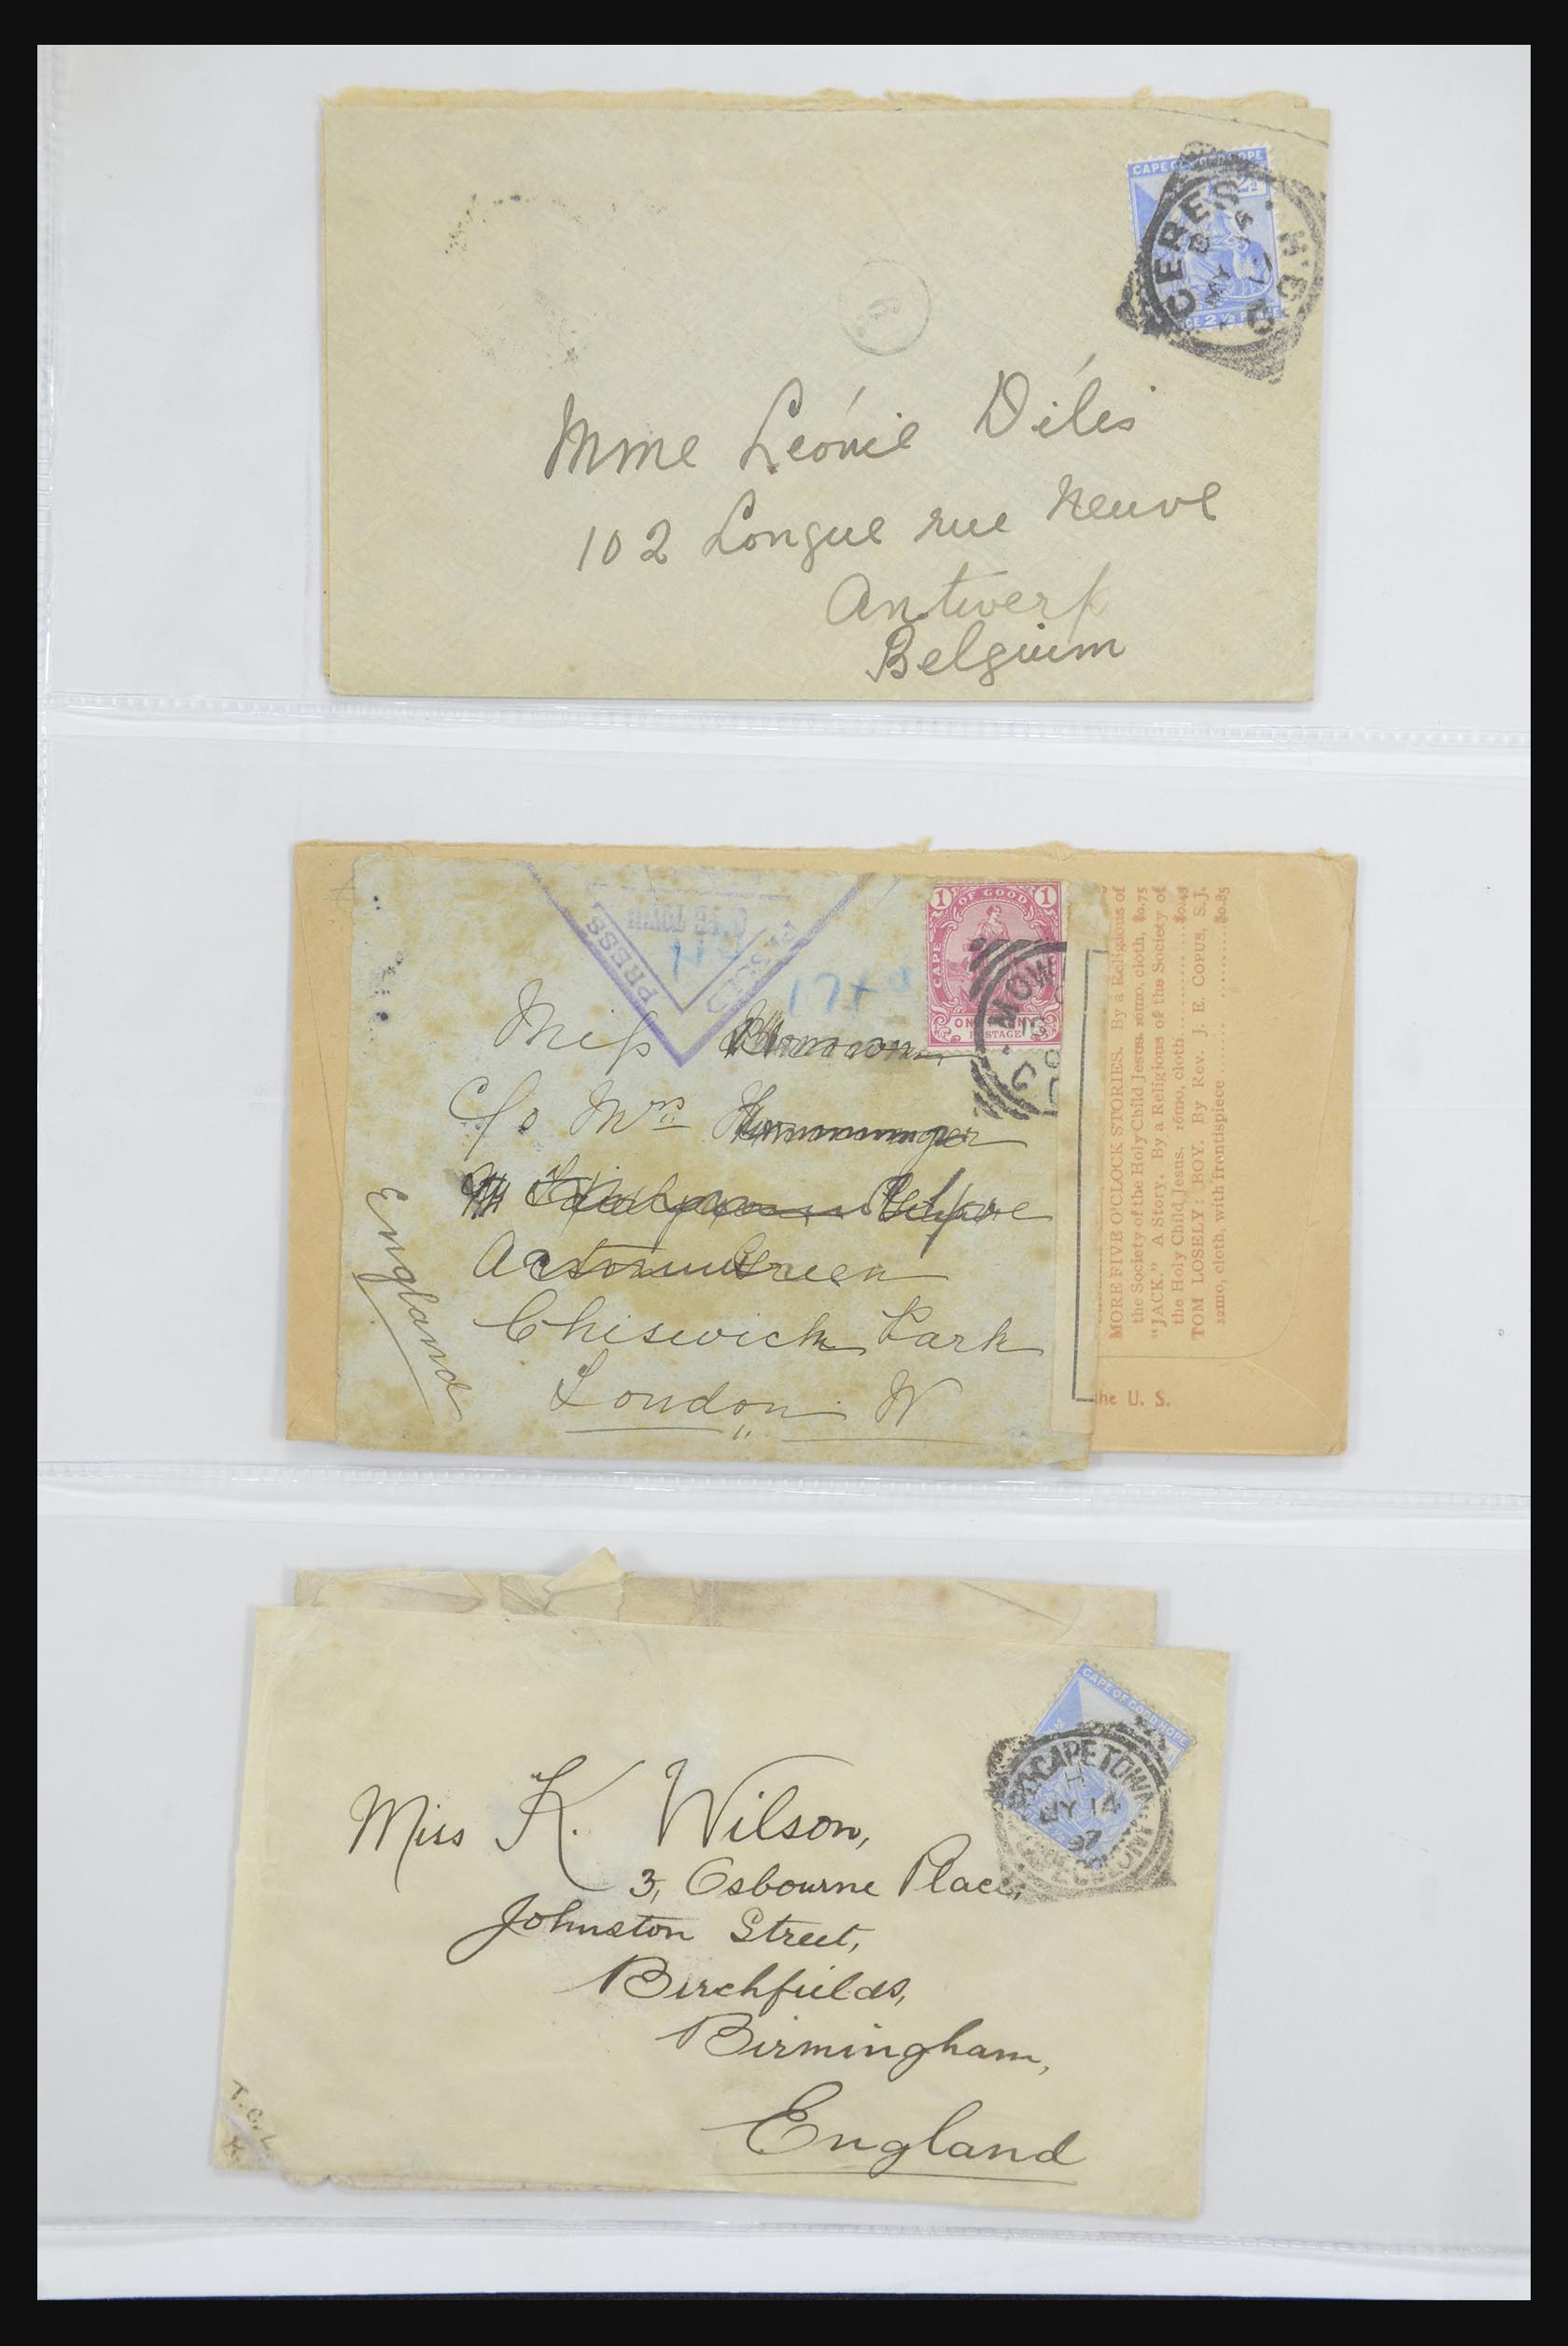 CAPE OF GOOD HOPE
2½
CERES
2½
Mme Léonie Délis
102 Longue rue Neuve
Antwerp
Belgium
1 OF GOOD 1
CAPE
POSTAGE
MOW
PRESS
PASSED
Miss
c/o Mrs
Acton Green
Chiswick Park
London W
England
MORE FIVE O'CLOCK STORIES. By a Religious of
the Society of the Holy Child Jesus. 12mo, cloth, $0.75
"JACK." A Story. By a Religious of the Society of
the Holy Child Jesus. 16mo, cloth..........$0.45
TOM LOSELY: BOY. By Rev. J. E. COPUS, S.J.
12mo, cloth, with frontispiece..........$0.85
the U. S.
CAPE OF GOOD HOPE
CAPE TOWN
H
MY 14
97
Miss K. Wilson,
3, Osbourne Place,
Johnston Street,
Birchfields,
Birmingham,
England
T.C.L.